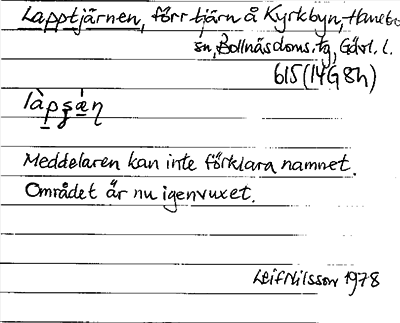 Lapptjärnen, förr tjärn å Kyrkbyn, Hanebo
sn, Bollnäs doms. tg, Gävl. l.
615 (14G8h)
Meddelaren kan inte förklara namnet.
Området är nu igenvuxet.
Leif Nilsson 1978